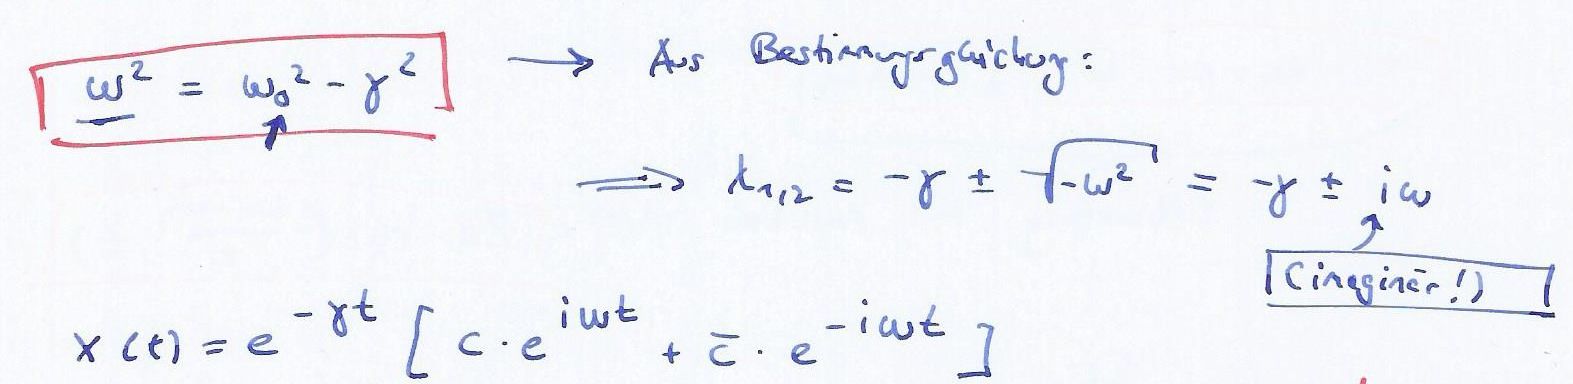 ω² = ω₀² - γ² → Aus Bestimmungsgleichung:
⟹ λ₁,₂ = -γ ± √-ω² = -γ ± iω
(imaginär!)
x(t) = e^{-γt} [ c · e^{iωt} + c̄ · e^{-iωt} ]